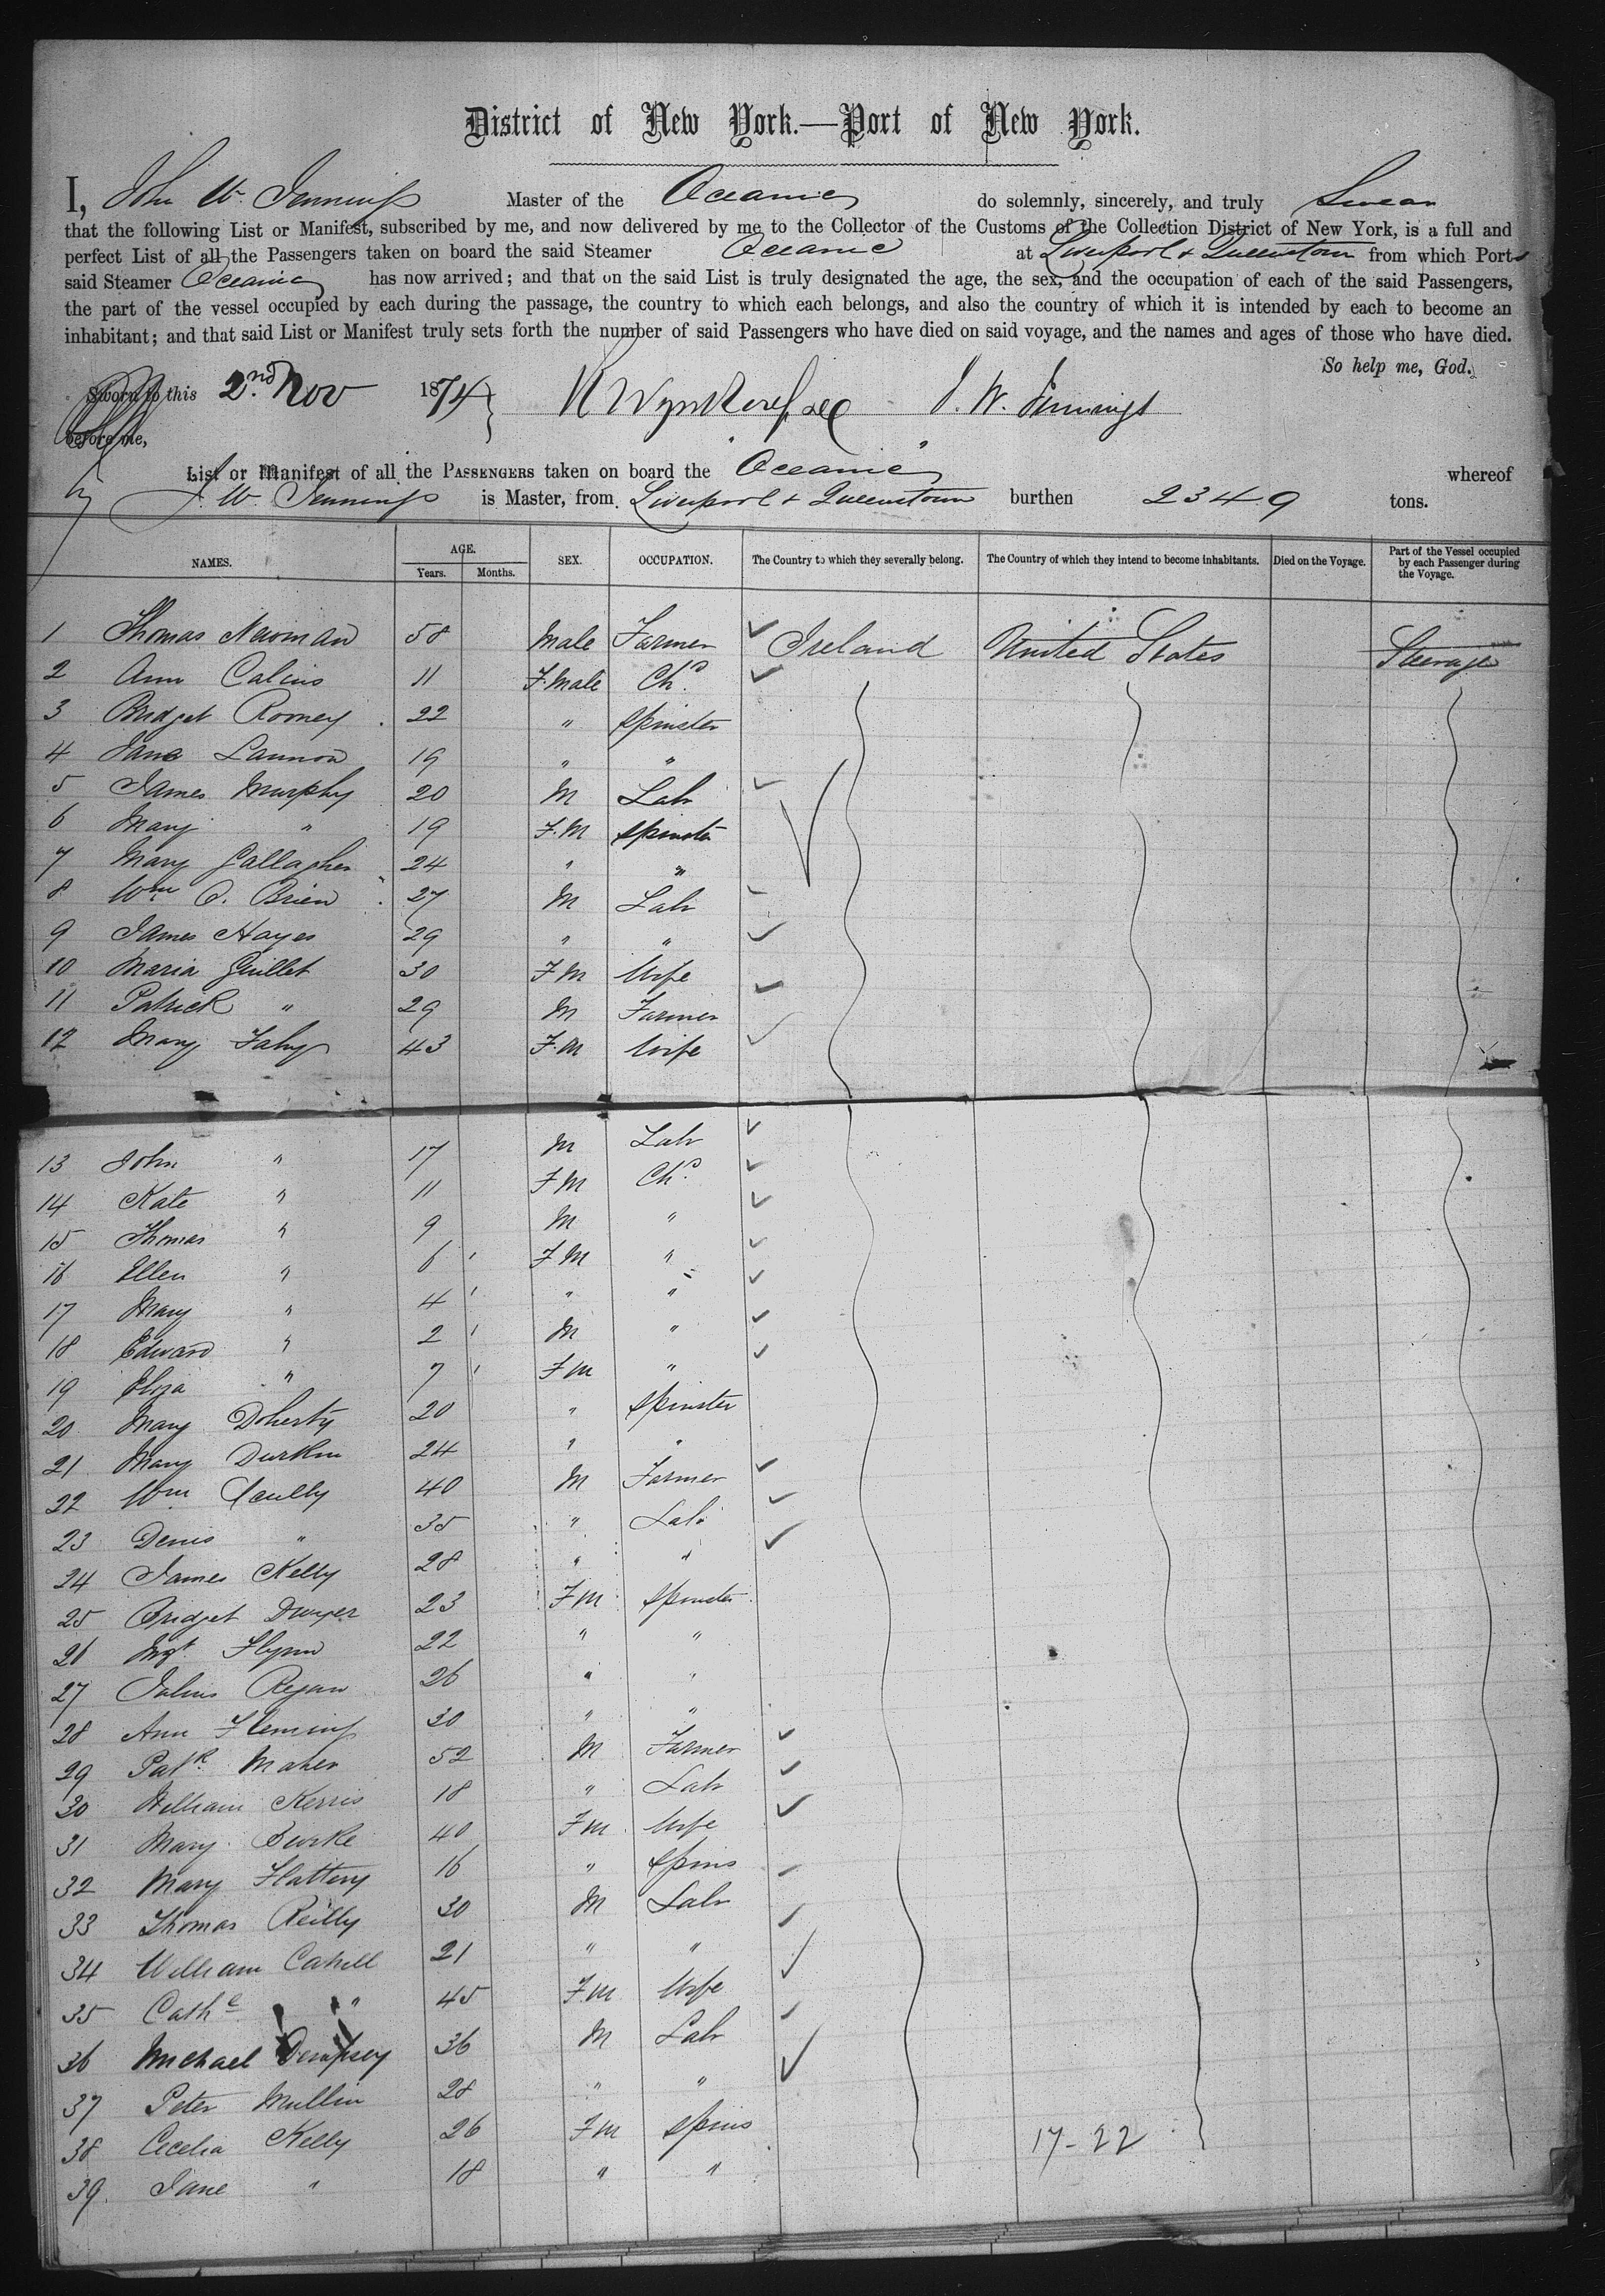 District of New York.—Port of New York.
I, John W. Jennings Master of the Oceanic do solemnly, sincerely, and truly Swear
that the following List or Manifest, subscribed by me, and now delivered by me to the Collector of the Customs of the Collection District of New York, is a full and
perfect List of all the Passengers taken on board the said Steamer Oceanic at Liverpool & Queenstown from which Ports
said Steamer Oceanic has now arrived; and that on the said List is truly designated the age, the sex, and the occupation of each of the said Passengers,
the part of the vessel occupied by each during the passage, the country to which each belongs, and also the country of which it is intended by each to become an
inhabitant; and that said List or Manifest truly sets forth the number of said Passengers who have died on said voyage, and the names and ages of those who have died.
So help me, God.
Sworn to this 2nd. Nov 1874 J. W. Jennings
before me,
List or Manifest of all the PASSENGERS taken on board the Oceanic whereof
J. W. Jennings is Master, from Liverpool & Queenstown burthen 2349 tons.
NAMES. AGE. Years. Months. SEX. OCCUPATION. The Country to which they severally belong. The Country of which they intend to become inhabitants. Died on the Voyage. Part of the Vessel occupied by each Passenger during the Voyage.
1 Thomas Newman 58 Male Farmer Ireland United States Steerage
2 Ann Calins 11 F.Male Chd.
3 Bridget Rooney 22 " Spinster
4 Jane Lannon 19 " "
5 James Murphy 20 M Labr
6 Mary " 19 F.M Spinster
7 Mary Gallagher 24 " "
8 Wm O. Brien 27 M Labr
9 James Hayes 29 " "
10 Maria Guillet 30 F M Wife
11 Patrick " 29 M Farmer
12 Mary Fahy 43 F.M Wife
13 John " 17 M Labr
14 Kate " 11 F M Chd.
15 Thomas " 9 M "
16 Ellen " 6 F M "
17 Mary " 4 " "
18 Edward " 2 M "
19 Eliza " 7 F M "
20 Mary Doherty 20 " Spinster
21 Mary Durkin 24 " "
22 Wm Scully 40 M Farmer
23 Denis " 35 " Labr
24 James Kelly 28 " "
25 Bridget Dwyer 23 F M Spinster
26 Mgt. Flynn 22 " "
27 Regan 26 " "
28 Ann Fleming 30 " "
29 Patk. Maher 52 M Farmer
30 William Kerris 18 " Labr
31 Mary Burke 40 F M Wife
32 Mary Flattery 16 " Spins
33 Thomas Reilly 30 M Labr
34 William Cahill 21 " "
35 Cathe " 45 F M Wife
36 Michael Dempsey 36 M Labr
37 Peter Mullin 28 " "
38 Cecelia Kelly 26 F M Spins
39. Jane " 18 " "
17-22